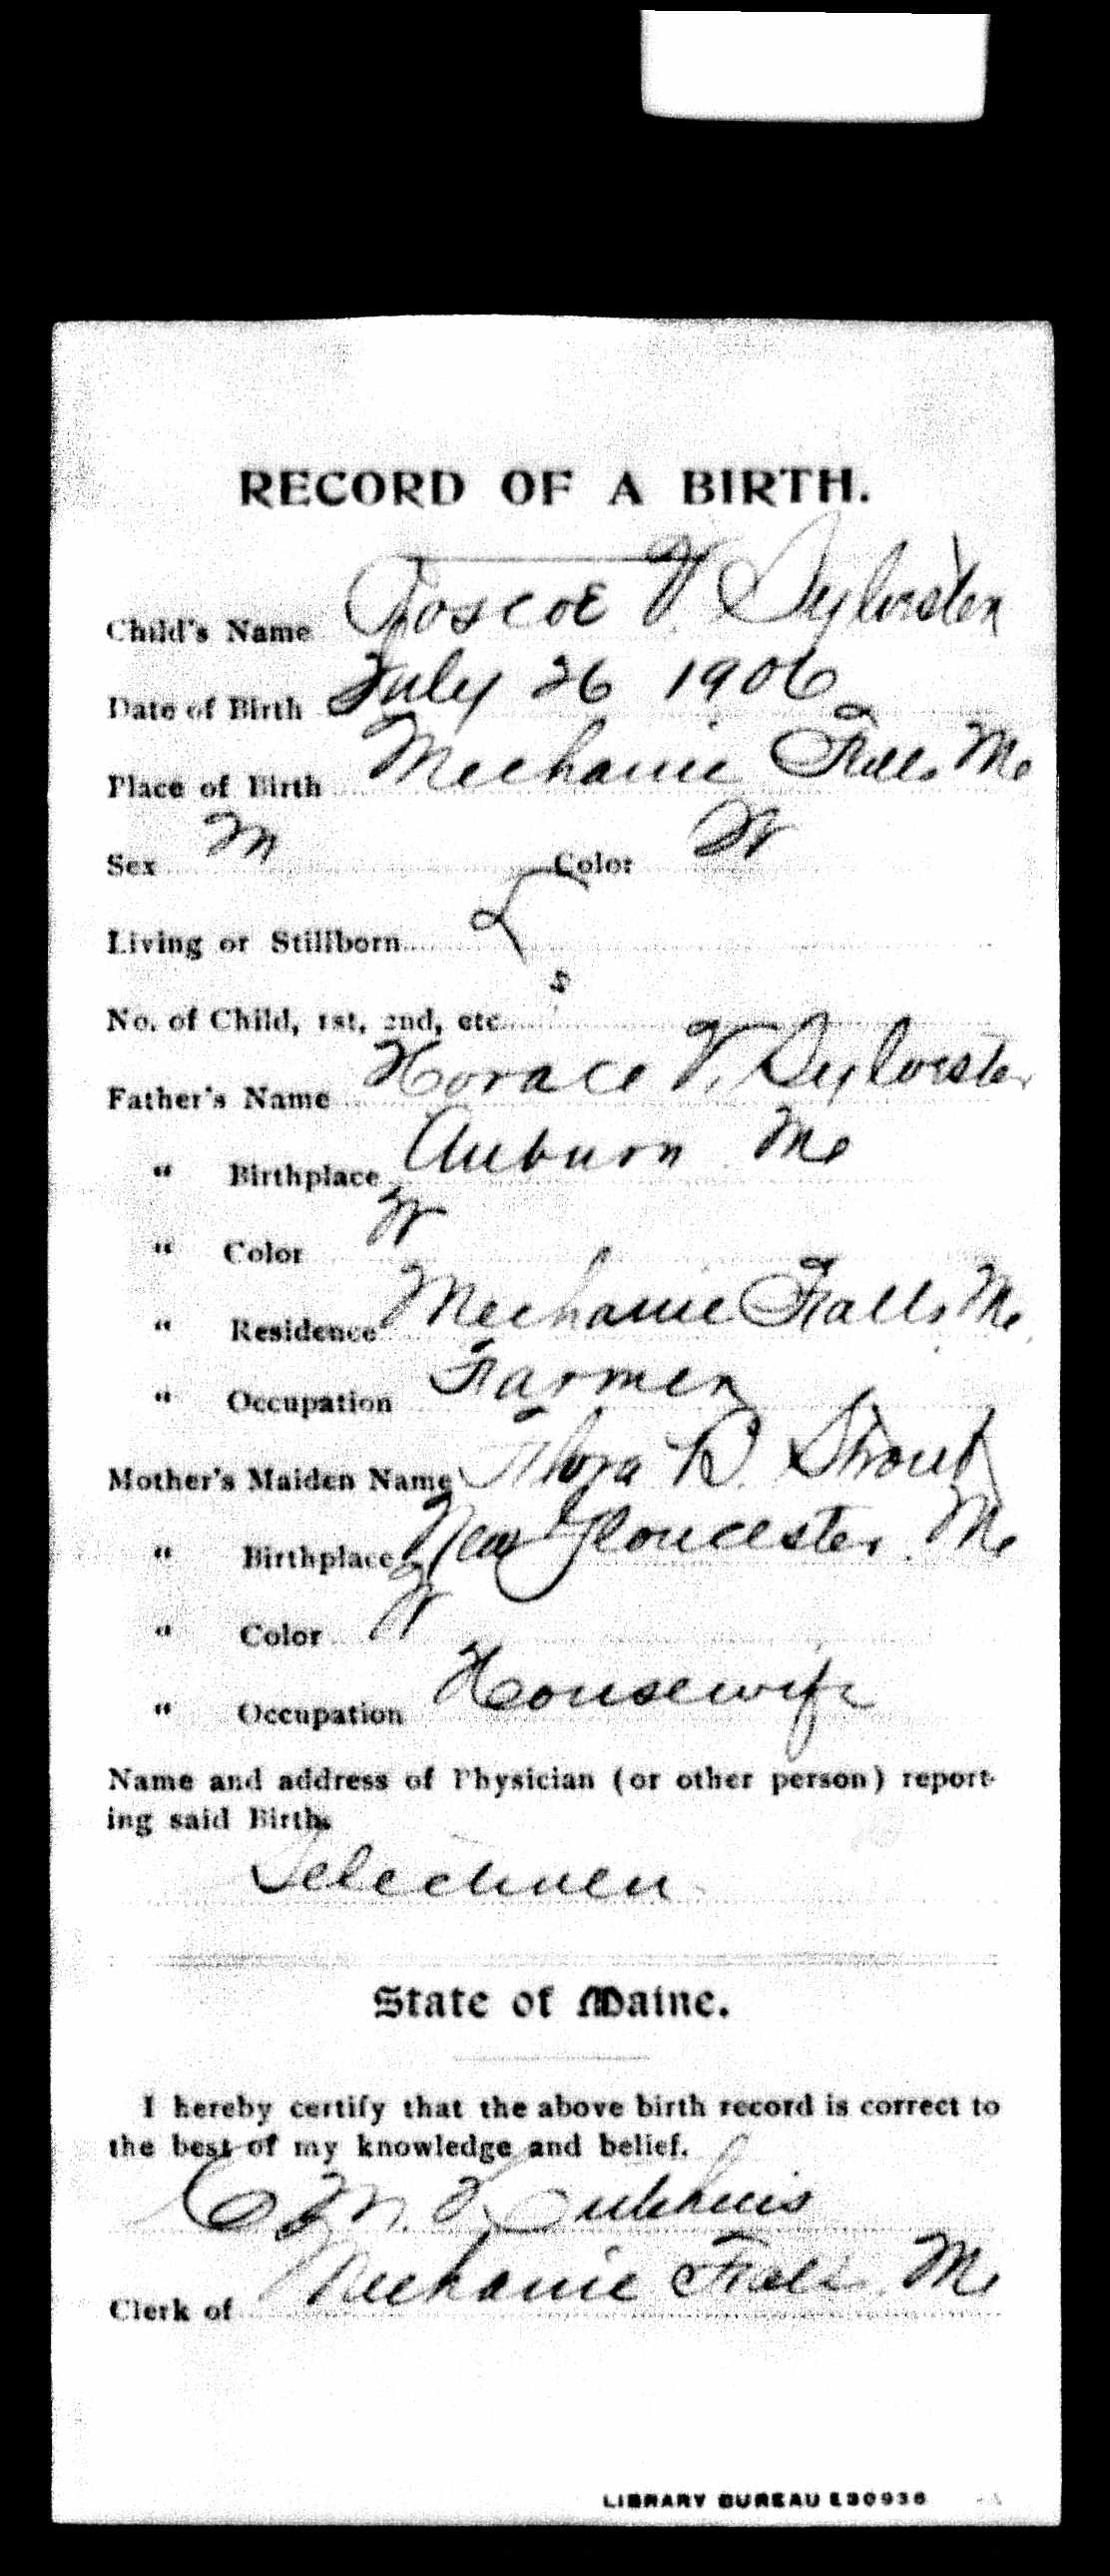 RECORD OF A BIRTH.
Child's Name Roscoe V. Sylvester
Date of Birth July 26 1906
Place of Birth Mechanic Falls Me
Sex M Color W
Living or Stillborn L
No. of Child, 1st, 2nd, etc.
Father's Name Horace V. Sylvester
" Birthplace Auburn Me
" Color W
" Residence Mechanic Falls Me
" Occupation Farmer
Mother's Maiden Name Flora B. Strout
" Birthplace New Gloucester Me
" Color W
" Occupation Housewife
Name and address of Physician (or other person) report-
ing said Birth.
Selectmen
State of Maine.
I hereby certify that the above birth record is correct to
the best of my knowledge and belief.
Clerk of Mechanic Falls Me
LIBRARY BUREAU E30936